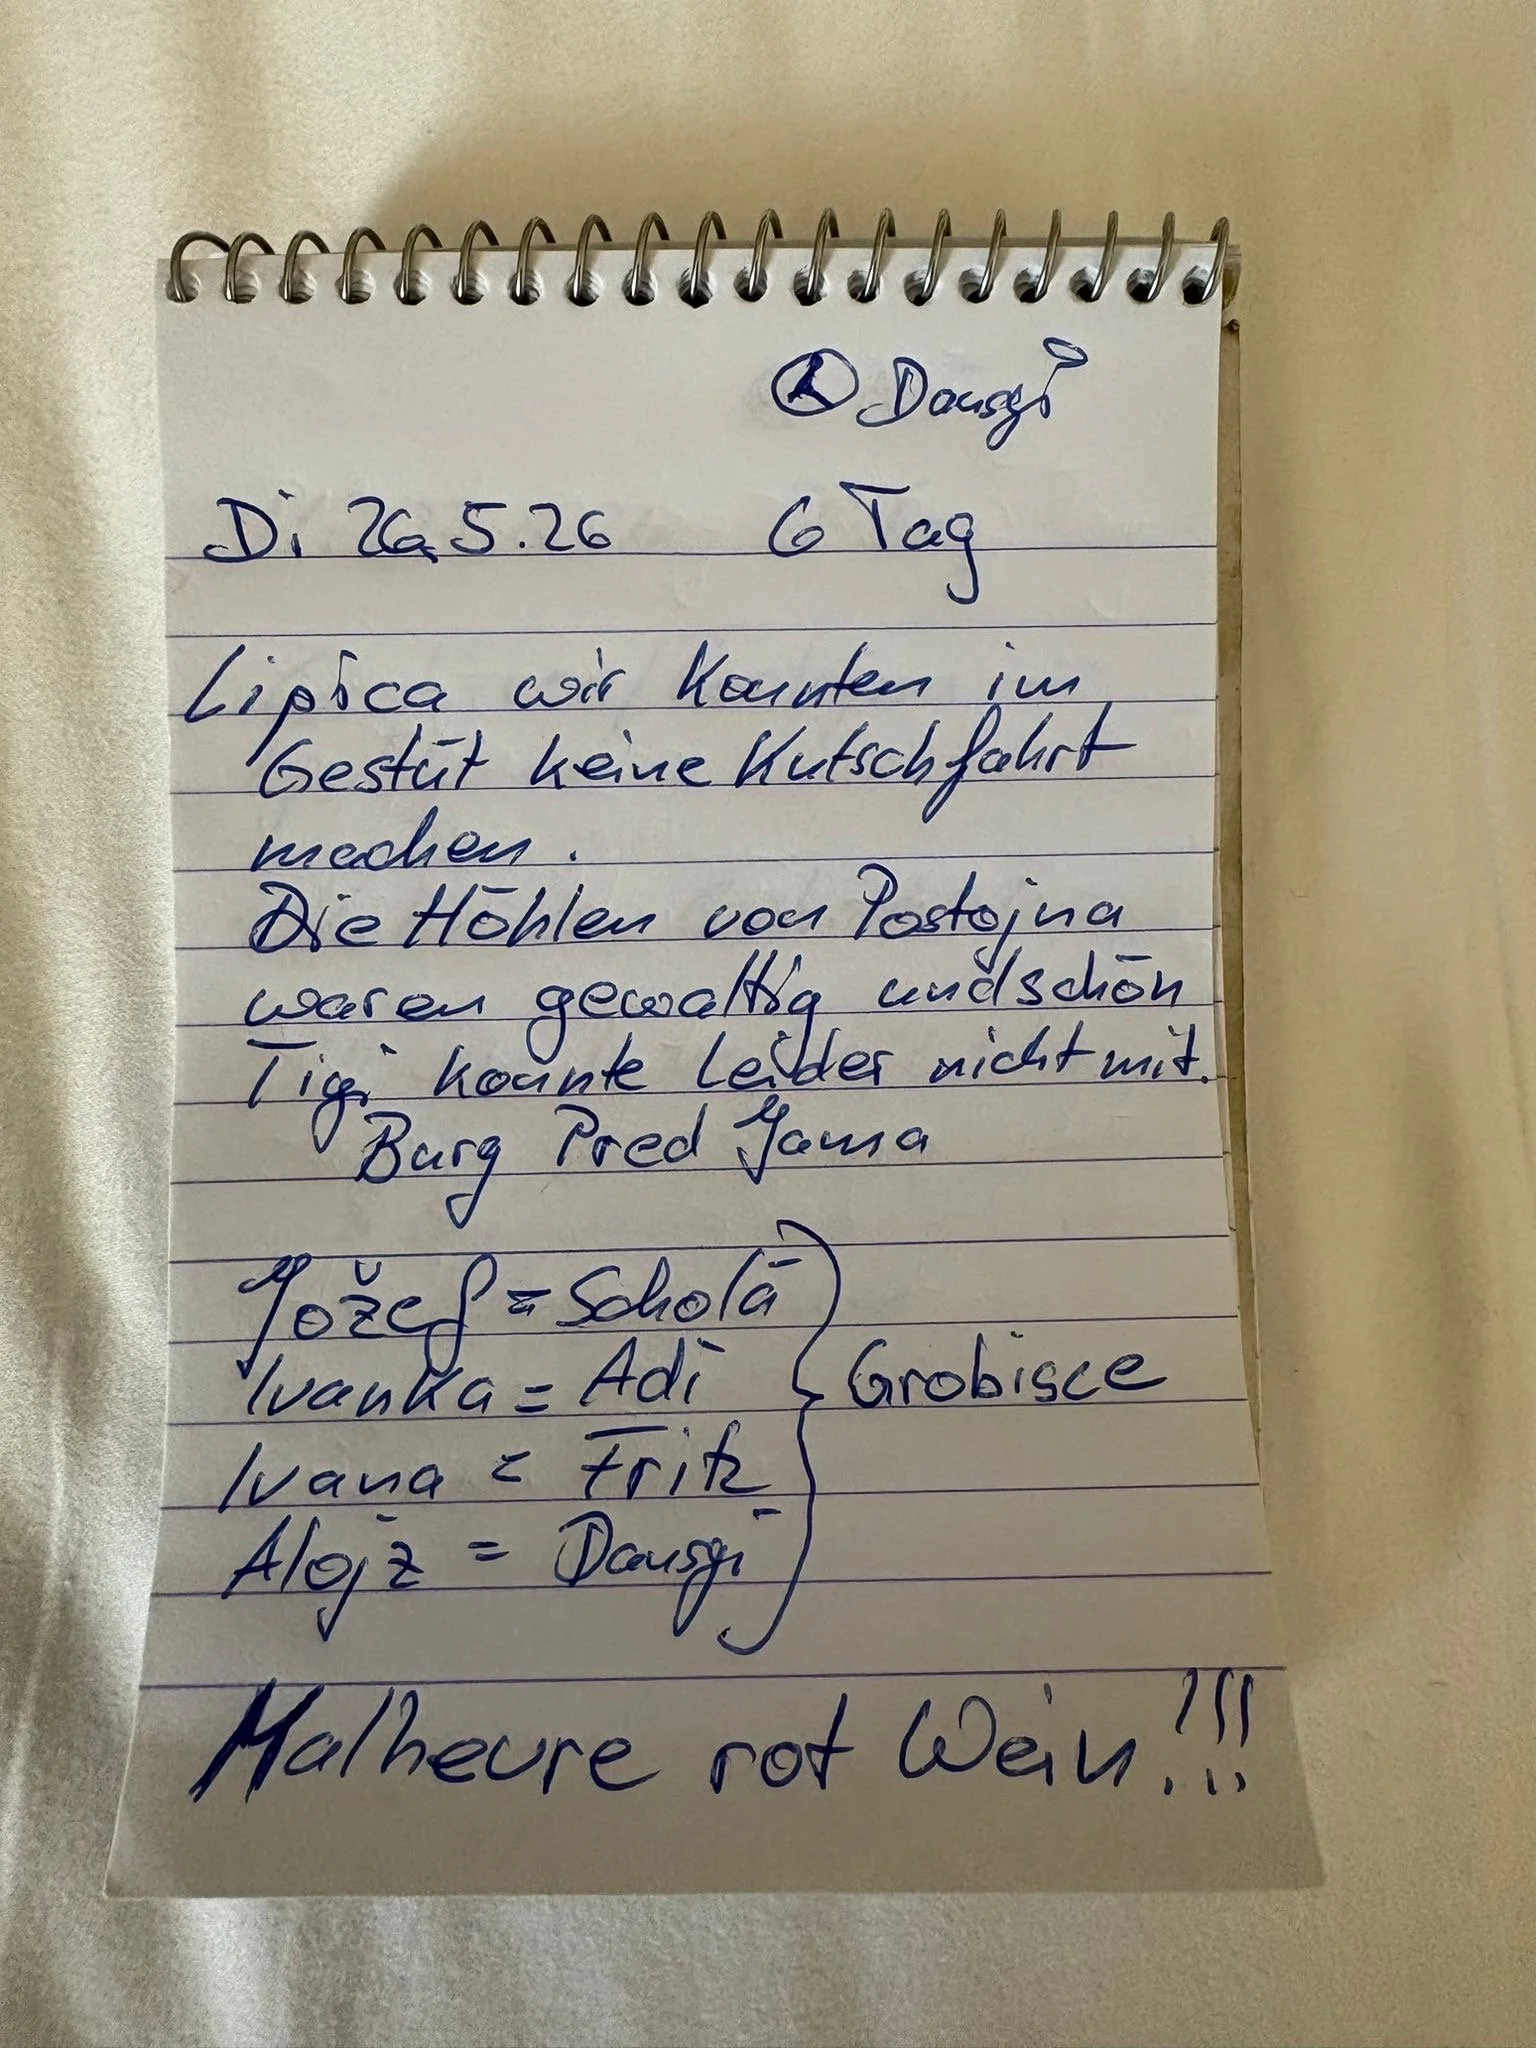 Dausgi
Di 26.5.26 6 Tag
Lipica wir konnten im
Gestüt keine Kutschfahrt
machen.
Die Höhlen von Postojna
waren gewaltig und schön
Tigi konnte leider nicht mit.
Burg Pred Jama
Jožef = Scholä
Ivanka = Adi
Ivana = Fritz
Alojz = Dausgi
Grobisce
Malheure rot Wein!!!